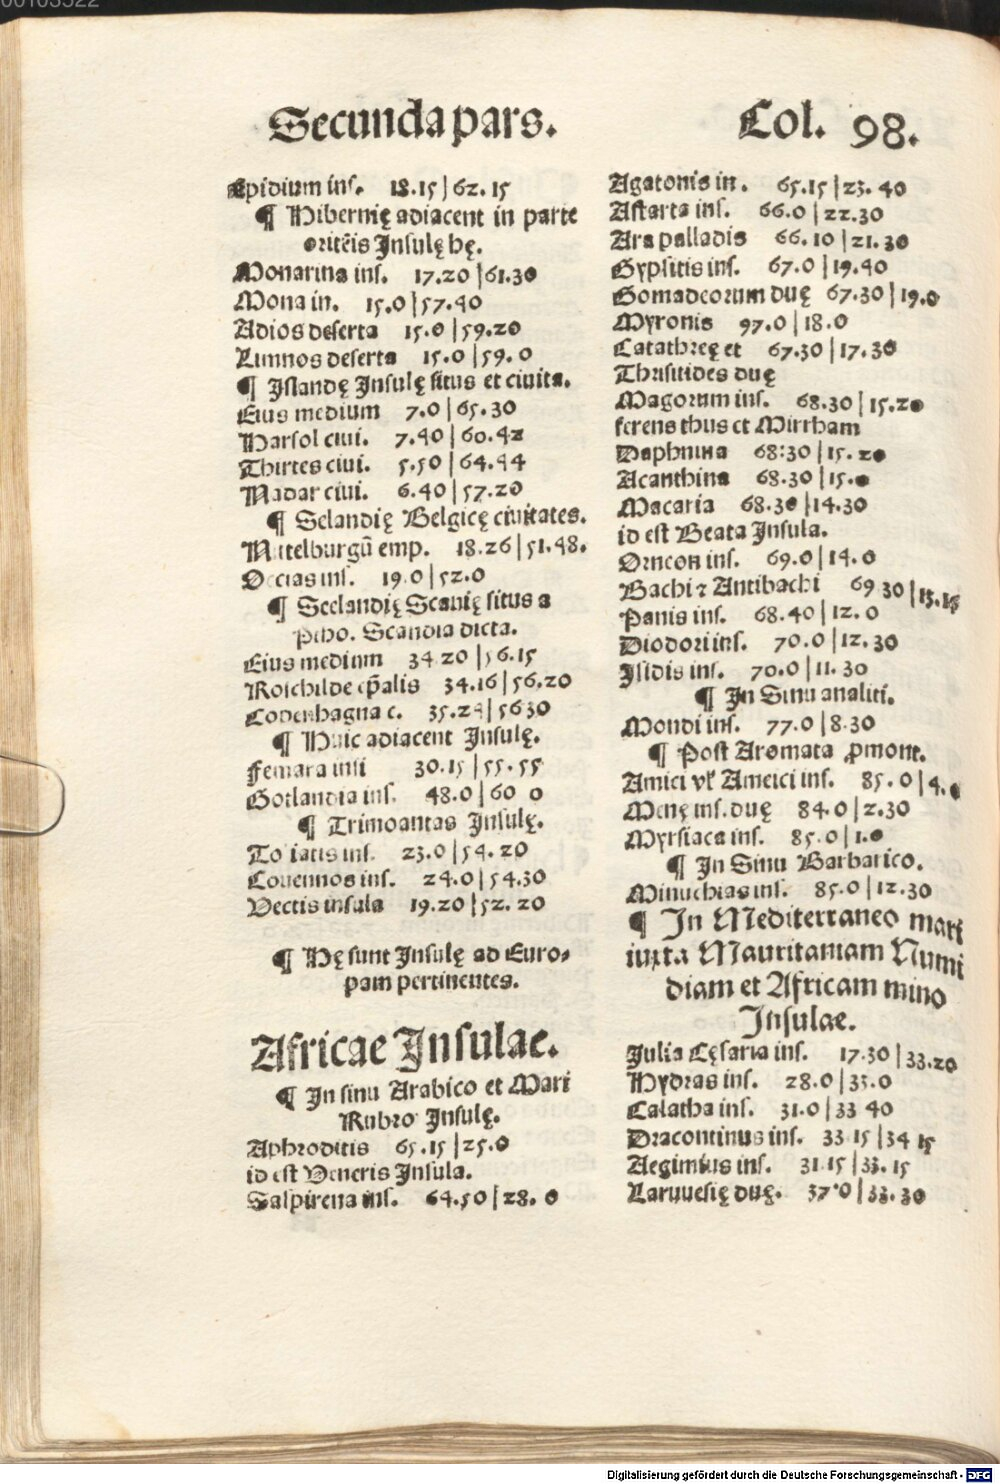 00103522
Secunda pars. Col. 98.
Epidium inſ. 18.15 | 62.15
¶ Hibernię adiacent in parte
oritẽis Inſulę hę.
Monarina ins. 17.20 | 61.30
Mona in. 15.0 | 57.40
Adios deſerta 15.0 | 59.20
Limnos deſerta 15.0 | 59.0
¶ Iſlandę Inſulę ſitus et ciuita.
Eius medium 7.0 | 65.30
Harſol ciui. 7.40 | 60.42
Thirtes ciui. 5.50 | 64.44
Nadar ciui. 6.40 | 57.20
¶ Selandię Belgicę ciuitates.
Mittelburgũ emp. 18.26 | 51.48.
Occias inſ. 19.0 | 52.0
¶ Seelandię Scanię ſitus a
Ptho. Scandia dicta.
Eius medium 34 20 | 56.15
Roſchilde cp̃alis 34.16 | 56.20
Copenhagna c. 35.24 | 56 30
¶ Huic adiacent Inſulę.
Femara inſi 30.15 | 55.55
Gotlandia inſ. 48.0 | 60 0
¶ Trimoantas Inſulę.
To iatis inſ. 23.0 | 54.20
Couennos inſ. 24.0 | 54.30
Vectis inſula 19.20 | 52.20
¶ Hę ſunt Inſulę ad Euro⸗
pam pertinentes.
Africae Inſulae.
¶ In ſinu Arabico et Mari
Rubro Inſulę.
Aphroditis 65.15 | 25.0
id eſt Veneris Inſula.
Saſpirena inſ. 64.50 | 28.0
Agatonis in. 65.15 | 23.40
Aſtarta inſ. 66.0 | 22.30
Ara palladis 66.10 | 21.30
Gypſitis inſ. 67.0 | 19.40
Gomadeorum duę 67.30 | 19.0
Myronis 97.0 | 18.0
Catathreę et 67.30 | 17.30
Thriſitides duę
Magorum inſ. 68.30 | 15.20
ferens thus et Mirrham
Daphnina 68:30 | 15.20
Acanthina 68.30 | 15.0
Macaria 68.30 | 14.30
id eſt Beata Inſula.
Orneon inſ. 69.0 | 14.0
Bachi ⁊ Antibachi 69 30 | 13.15
Panis inſ. 68.40 | 12.0
Diodori inſ. 70.0 | 12.30
Iſidis inſ. 70.0 | 11.30
¶ In Sinu analiti.
Mondi inſ. 77.0 | 8.30
¶ Poſt Aromata ꝓmont.
Amici vł Ameici inſ. 85.0 | 4.0
Menę inſ. duę 84.0 | 2.30
Myrſiaca inſ. 85.0 | 1.0
¶ In Sinu Barbarico.
Minuthias inſ. 85.0 | 12.30
¶ In Mediterraneo mari
iuxta Mauritaniam Numi
diam et Africam mino
Inſulae.
Julia Cęſaria inſ. 17.30 | 33.20
Hydras inſ. 28.0 | 35.0
Calatha inſ. 31.0 | 33 40
Dracontinus inſ. 33 15 | 34 15
Aegimius inſ. 31 15 | 33.15
Laruueſię duę. 37.0 | 33.30
Digitalisierung gefördert durch die Deutsche Forschungsgemeinschaft - DFG